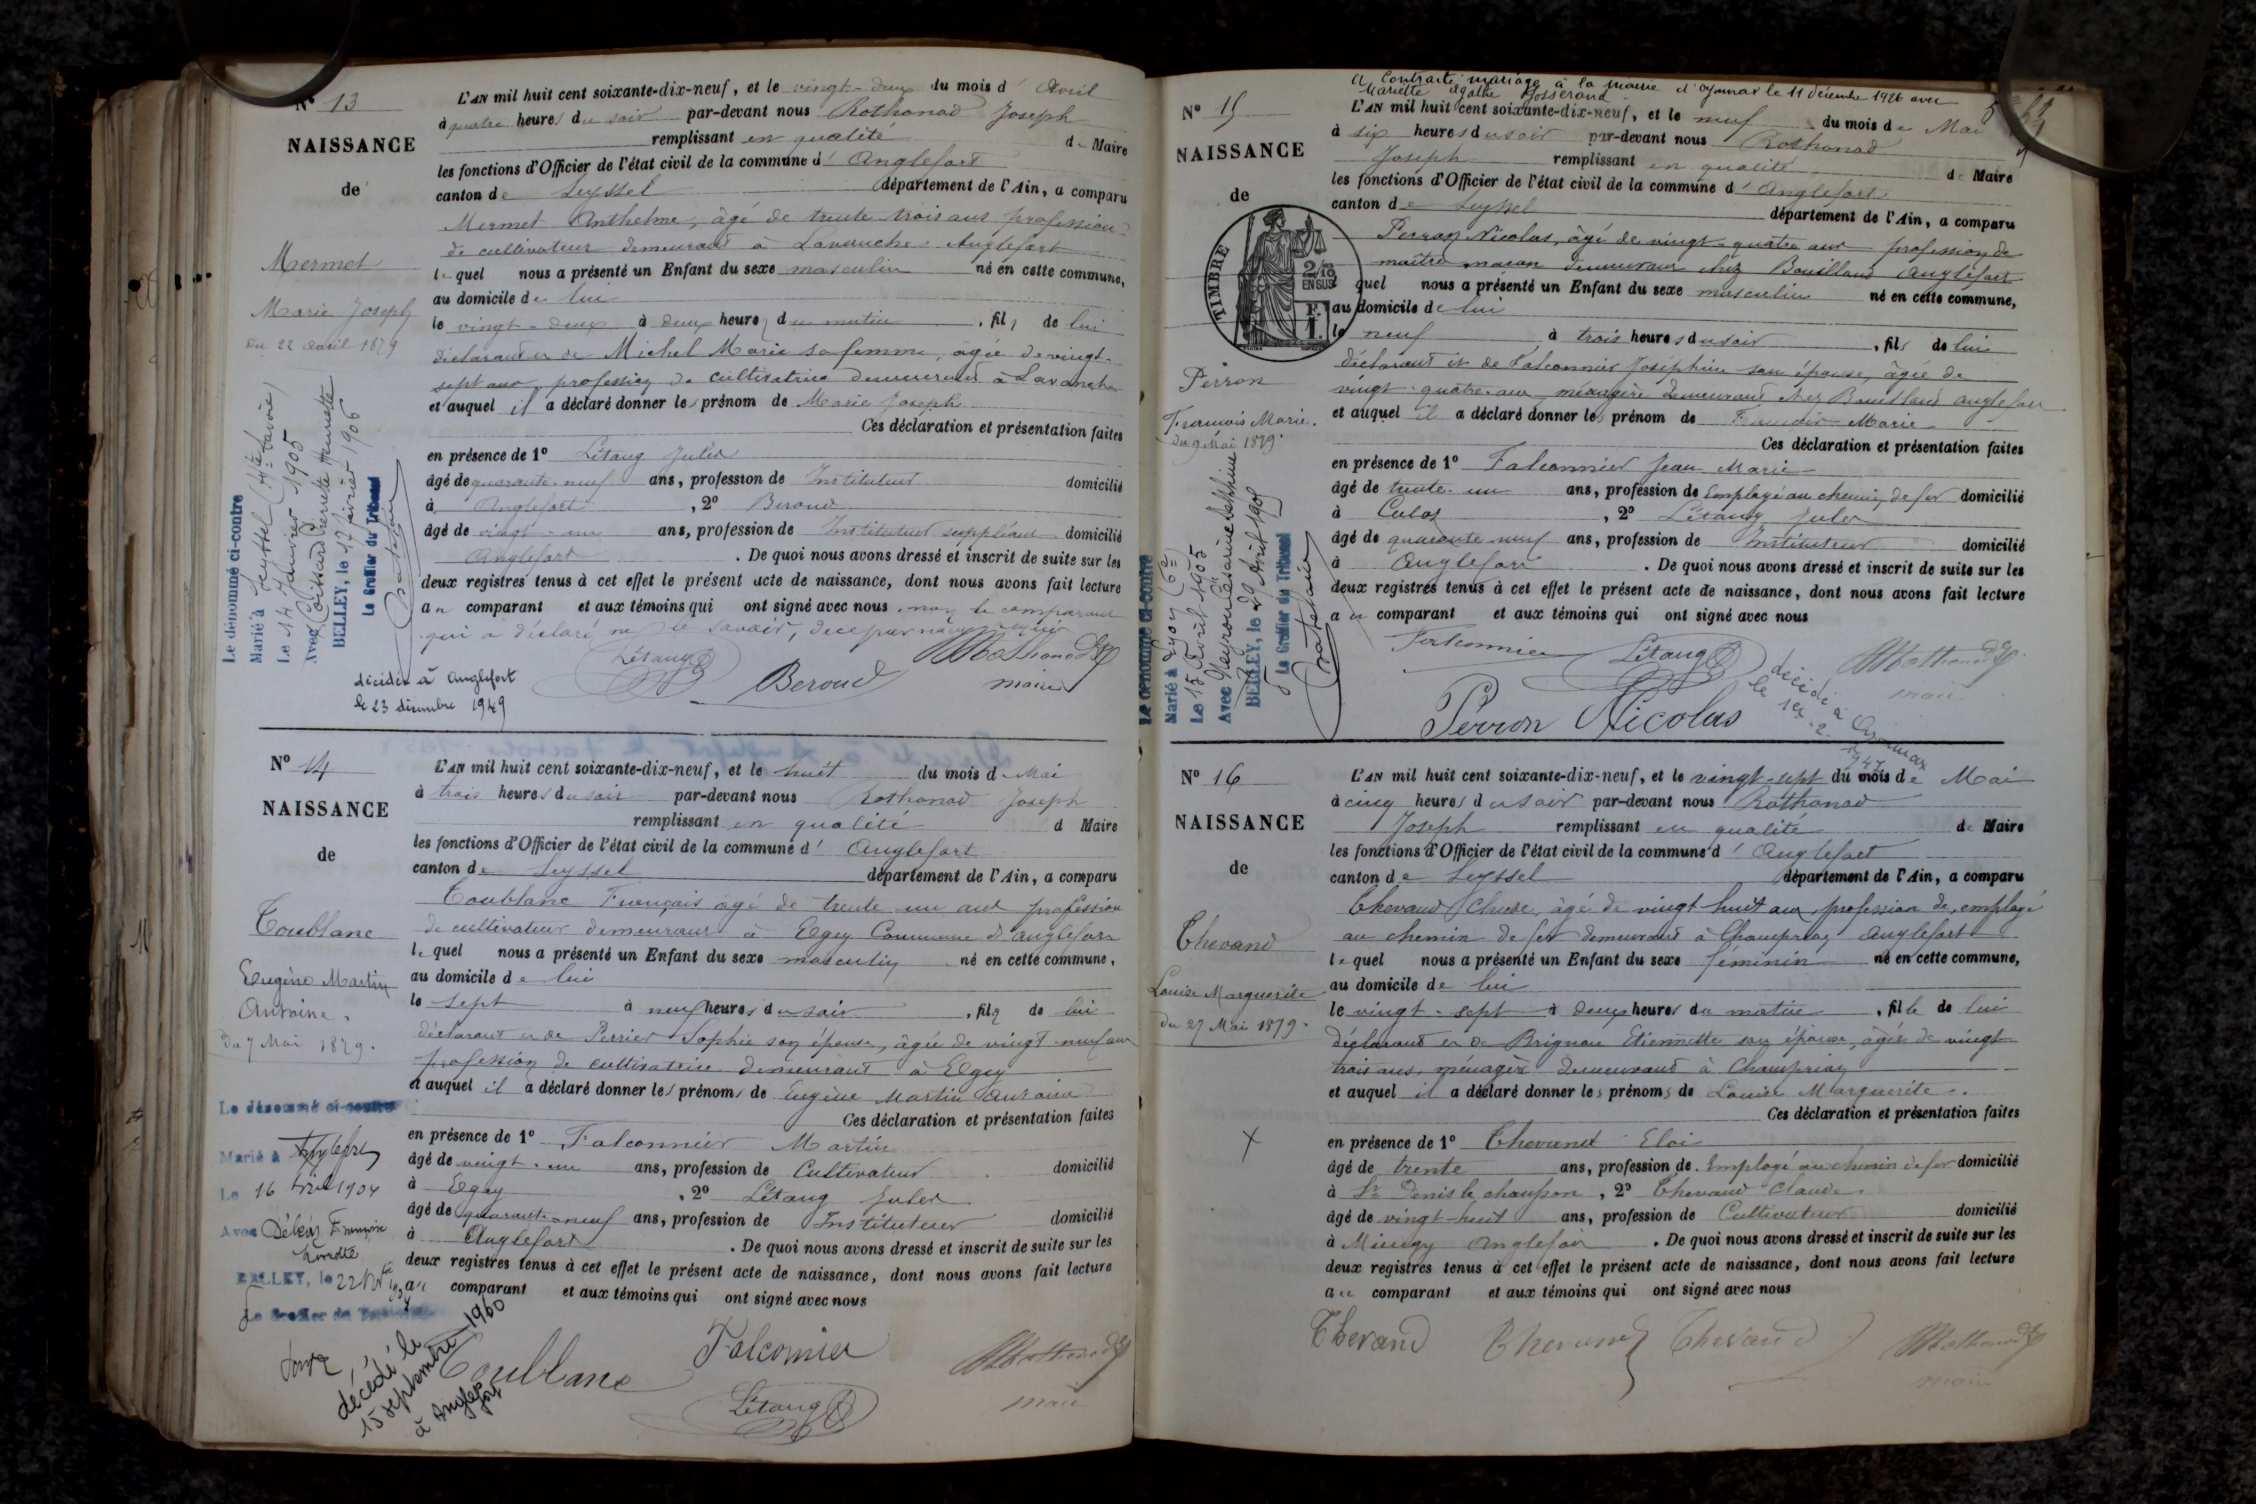 Nº 13
NAISSANCE
de
Mermet
Marie Joseph
Du 22 avril 1879
L'AN mil huit cent soixante-dix-neuf, et le vingt-deux du mois d' Avril
à quatre heures du soir par-devant nous Rothonod Joseph
remplissant en qualité de Maire
les fonctions d'Officier de l'état civil de la commune d' Anglefort
canton de Seyssel département de l'Ain, a comparu
Mermet Anthelme, âgé de trente-trois ans profession
de cultivateur demeurant à Lavanche Anglefort
lequel nous a présenté un Enfant du sexe masculin né en cette commune,
au domicile de lui
le vingt-deux à deux heures du matin, fils de lui
déclarant et de Michel Marie sa femme, âgée de vingt-
sept ans, profession de cultivatrice demeurant à Lavanche
et auquel il a déclaré donner les prénom de Marie Joseph
Ces déclaration et présentation faites
en présence de 1º Létang Jules
âgé de quarante-neuf ans, profession de Instituteur domicilié
à Anglefort, 2º Beroud
âgé de vingt-un ans, profession de Instituteur suppléant domicilié
Anglefort. De quoi nous avons dressé et inscrit de suite sur les
deux registres tenus à cet effet le présent acte de naissance, dont nous avons fait lecture
au comparant et aux témoins qui ont signé avec nous, non le comparant
qui a déclaré ne le savoir, de ce par nous requis
Létang Beroud Rothonod
maire
Le dénommé ci-contre
Marié à Seyssel (Hte Savoie)
Le 14 Janvier 1905
Avec Henriette
BELLEY, le 17 février 1905
Le Greffier du Tribunal
décédé à Anglefort
le 23 décembre 1949
Nº 14
NAISSANCE
de
Toublanc
Eugène Martin
Antoine.
Du 7 Mai 1879.
L'AN mil huit cent soixante-dix-neuf, et le huit du mois de Mai
à trois heures du soir par-devant nous Rothonod Joseph
remplissant en qualité d Maire
les fonctions d'Officier de l'état civil de la commune d' Anglefort
canton de Seyssel département de l'Ain, a comparu
Toublanc François âgé de trente un ans profession
de cultivateur demeurant à Egey Commune d'anglefort
lequel nous a présenté un Enfant du sexe masculin né en cette commune,
au domicile de lui
le sept à neuf heures du soir, fils de lui
déclarant et de Perrier Sophie son épouse, âgée de vingt-neuf ans
profession de cultivatrice demeurant à Egey
et auquel il a déclaré donner les prénoms de Eugène Martin Antoine
Ces déclaration et présentation faites
en présence de 1º Falconnier Martin
âgé de vingt-un ans, profession de Cultivateur domicilié
à Egey, 2º Létang Jules
âgé de quarante-neuf ans, profession de Instituteur domicilié
à Anglefort. De quoi nous avons dressé et inscrit de suite sur les
deux registres tenus à cet effet le présent acte de naissance, dont nous avons fait lecture
au comparant et aux témoins qui ont signé avec nous
Toublanc Falconnier Rothonod
Létang maire
Le dénommé ci-contre
Marié à Anglefort
Le 16 1904
Avec Françoise
BELLEY, le 22
Le Greffier du Tribunal
décédé le
15 septembre 1960
à Anglefort
a Contracté mariage à la mairie d'Oyonnax le 11 décembre 1926 avec
Mariette Agathe Josserand
Nº 15
NAISSANCE
de
TIMBRE
2/10
EN SUS
Perron
François Marie.
Du 9 Mai 1879.
L'AN mil huit cent soixante-dix-neuf, et le neuf du mois de Mai
à six heures du soir par-devant nous Rothonod
Joseph remplissant en qualité de Maire
les fonctions d'Officier de l'état civil de la commune d' Anglefort
canton de Seyssel département de l'Ain, a comparu
Perron Nicolas, âgé de vingt-quatre ans profession de
maître maçon demeurant chez Bouilland Anglefort
quel nous a présenté un Enfant du sexe masculin né en cette commune,
au domicile de lui
le neuf à trois heures du soir, fils de lui
déclarant et de Falconnier Joséphine son épouse, âgée de
vingt-quatre ans ménagère demeurant chez Bouilland anglefort
et auquel il a déclaré donner les prénom de François Marie
Ces déclaration et présentation faites
en présence de 1º Falconnier Jean Marie
âgé de trente-un ans, profession de Employé au chemin de fer domicilié
à Culoz, 2º Létang Jules
âgé de quarante neuf ans, profession de Instituteur domicilié
à Anglefort. De quoi nous avons dressé et inscrit de suite sur les
deux registres tenus à cet effet le présent acte de naissance, dont nous avons fait lecture
au comparant et aux témoins qui ont signé avec nous
Falconnier Létang Rothonod
maire
Perron Nicolas
Le dénommé ci-contre
Marié à Lyon (6e)
Le 15 Avril 1905
Avec Joséphine
BELLEY, le 29 Avril 1905
Le Greffier du Tribunal
décédé à Oyonnax
le 1er. 2.
Nº 16
NAISSANCE
de
Thevand
Louise Marguerite
du 27 Mai 1879.
L'AN mil huit cent soixante-dix-neuf, et le vingt-sept du mois de Mai
à cinq heures du soir par-devant nous Rothonod
Joseph remplissant en qualité de Maire
les fonctions d'Officier de l'état civil de la commune d' Anglefort
canton de Seyssel département de l'Ain, a comparu
Thevand âgé de vingt huit ans, profession de employé
au chemin de fer demeurant à Champriaz Anglefort
lequel nous a présenté un Enfant du sexe féminin né en cette commune,
au domicile de lui
le vingt-sept à deux heures du matin, fille de lui
déclarant et de Etiennette son épouse, âgée de vingt
trois ans, ménagère demeurant à Champriaz
et auquel il a déclaré donner les prénoms de Louise Marguerite.
Ces déclaration et présentation faites
en présence de 1º Thevand Eloi
âgé de trente ans, profession de Employé au chemin de fer domicilié
à St Denis le chausson, 2º Thevand Claude
âgé de vingt-huit ans, profession de Cultivateur domicilié
à Mieugy Anglefort. De quoi nous avons dressé et inscrit de suite sur les
deux registres tenus à cet effet le présent acte de naissance, dont nous avons fait lecture
au comparant et aux témoins qui ont signé avec nous
Thevand Thevand Thevand Rothonod
maire